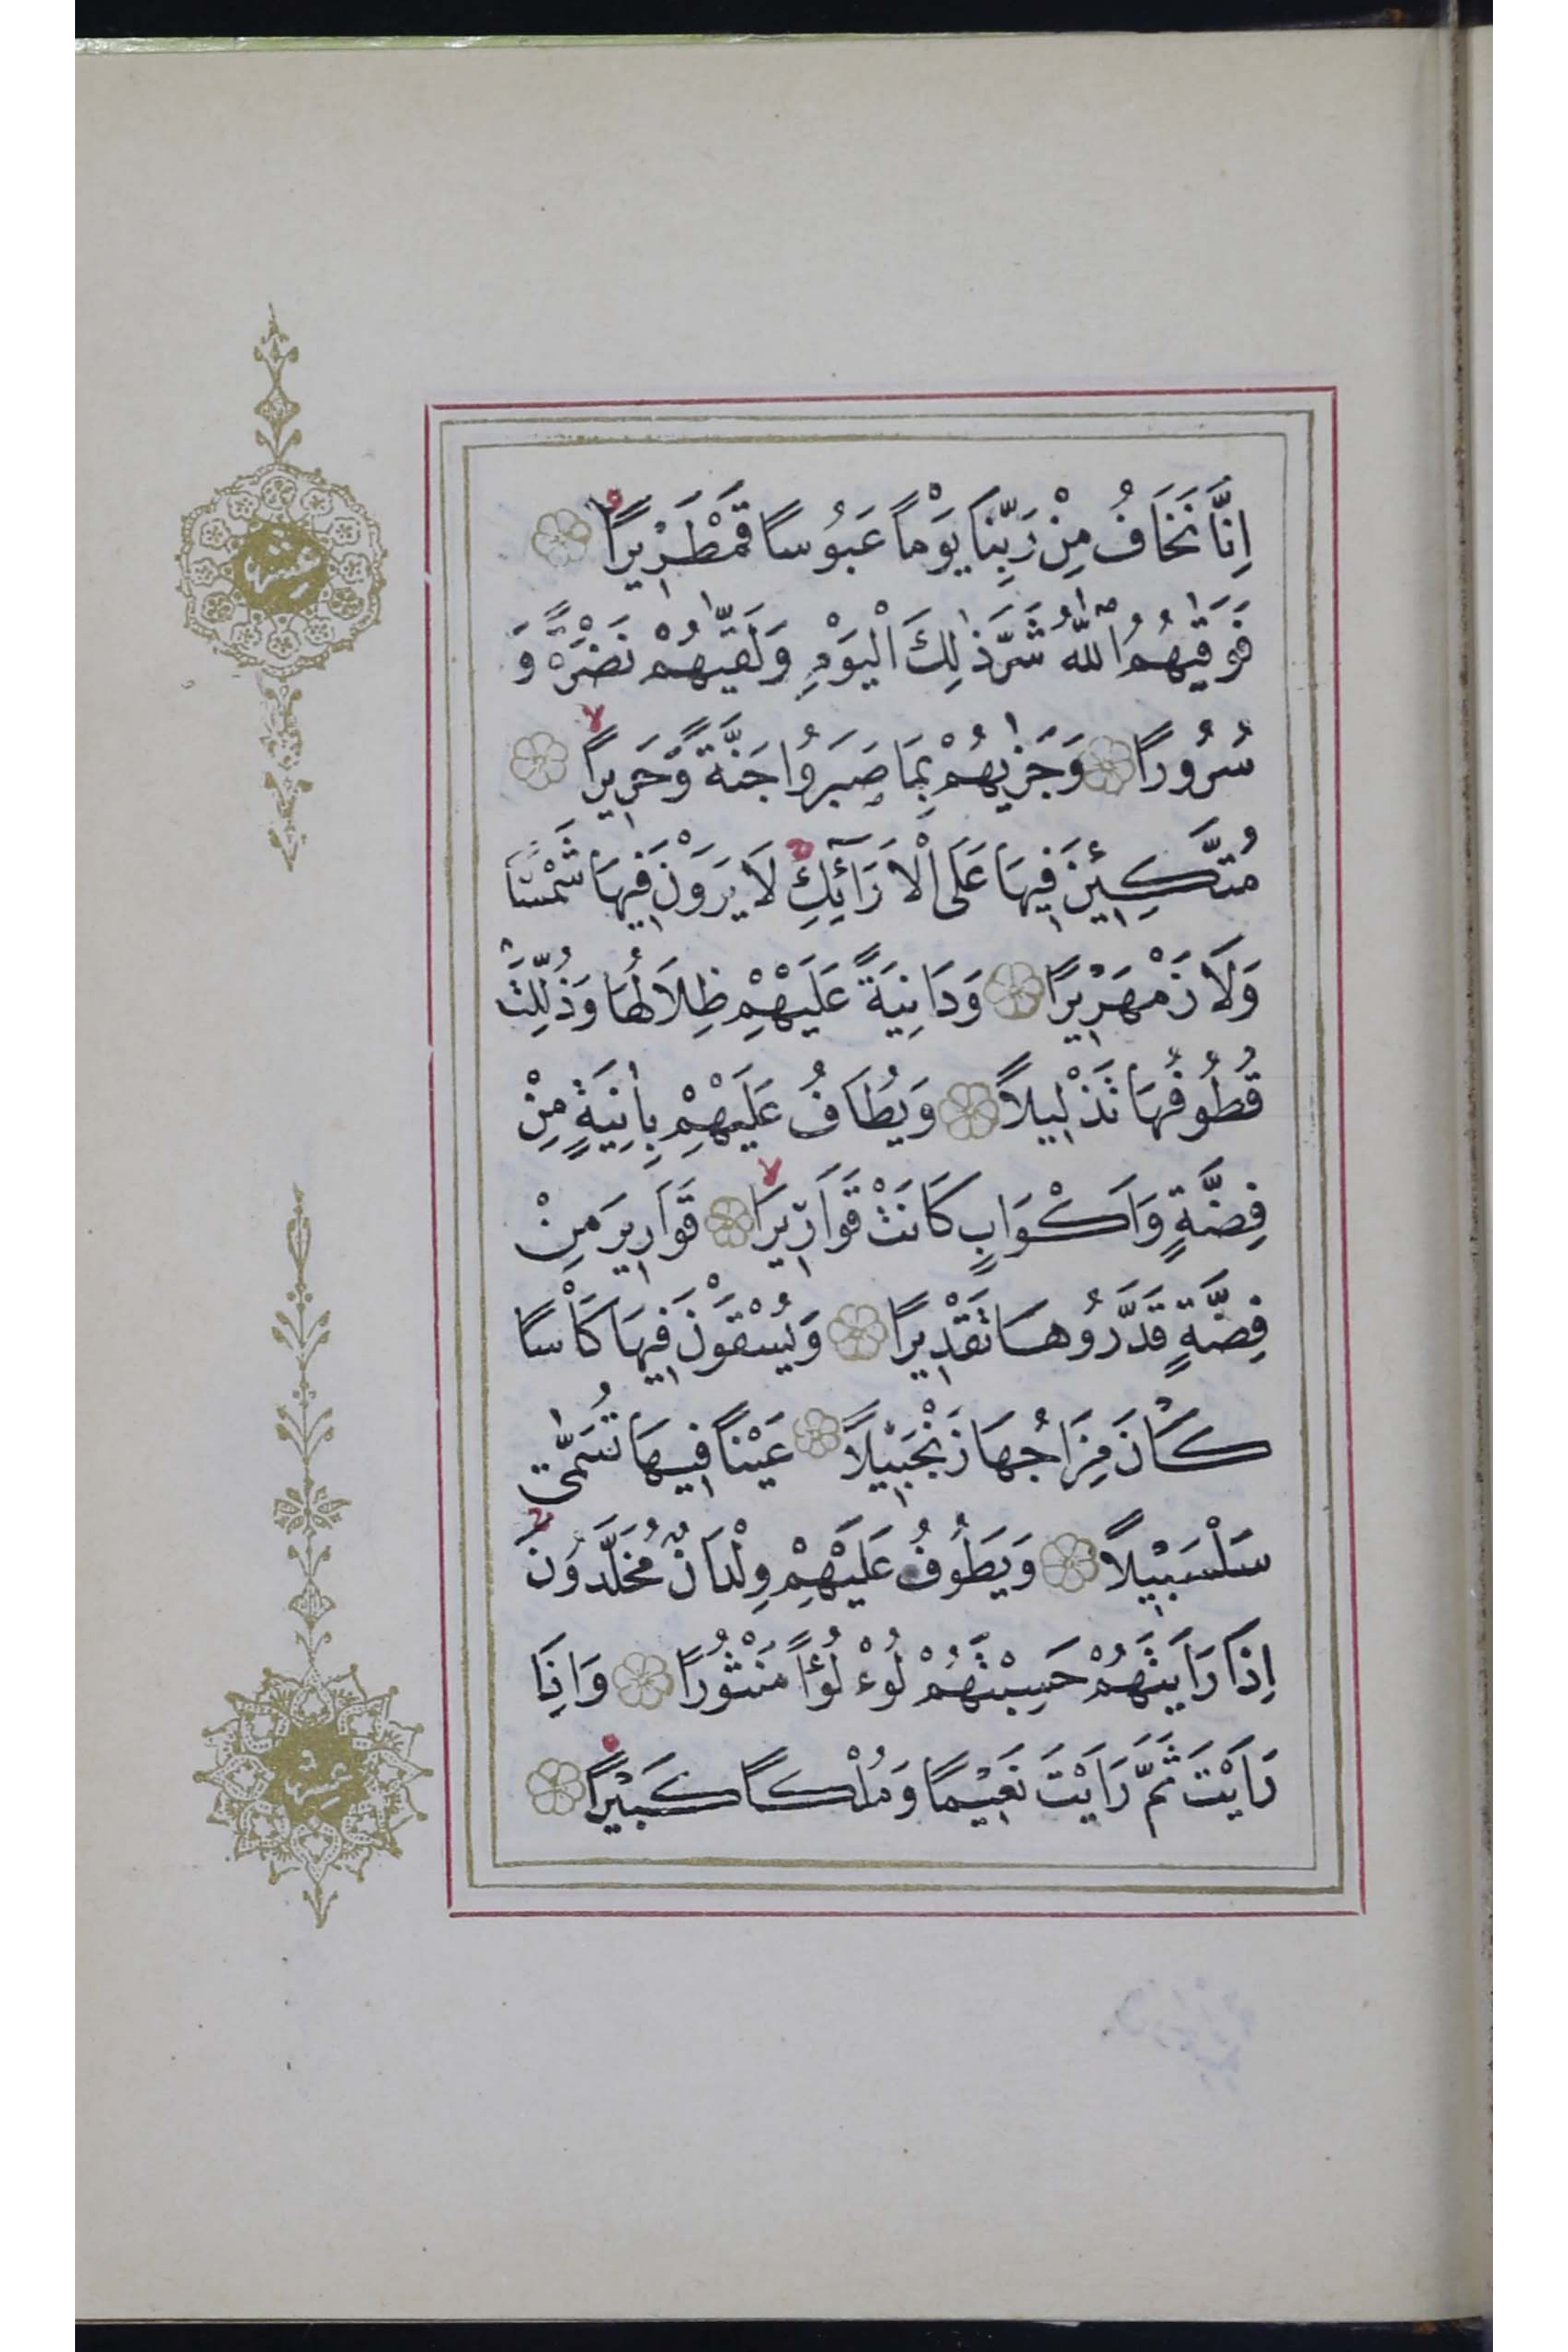 اِنَّا نَخَافُ مِنْ رَبِّنَا يَوْمًا عَبُوسًا قَمْطَرِيرًا
فَوَقٰيهُمُ اللّٰهُ شَرَّ ذٰلِكَ الْيَوْمِ وَلَقّٰيهُمْ نَضْرَةً وَ
سُرُورًا وَجَزٰيهُمْ بِمَا صَبَرُوا جَنَّةً وَحَرِيرًا لا
مُتَّكِـِٔينَ فِيهَا عَلَى الْاَرَآئِكِ لَا يَرَوْنَ فِيهَا شَمْسًا
وَلَا زَمْهَرِيرًا وَدَانِيَةً عَلَيْهِمْ ظِلَالُهَا وَذُلِّلَتْ
قُطُوفُهَا تَذْلِيلًا وَيُطَافُ عَلَيْهِمْ بِاٰنِيَةٍ مِنْ
فِضَّةٍ وَاَكْوَابٍ كَانَتْ قَوَارِيرَا لا قَوَارِيرَ مِنْ
فِضَّةٍ قَدَّرُوهَا تَقْدِيرًا وَيُسْقَوْنَ فِيهَا كَأْسًا
كَانَ مِزَاجُهَا زَنْجَبِيلًا عَيْنًا فِيهَا تُسَمّٰى
سَلْسَبِيلًا وَيَطُوفُ عَلَيْهِمْ وِلْدَانٌ مُخَلَّدُونَ ج
اِذَا رَاَيْتَهُمْ حَسِبْتَهُمْ لُؤْلُؤًا مَنْثُورًا وَاِذَا
رَاَيْتَ ثَمَّ رَاَيْتَ نَعِيمًا وَمُلْكًا كَبِيرًا